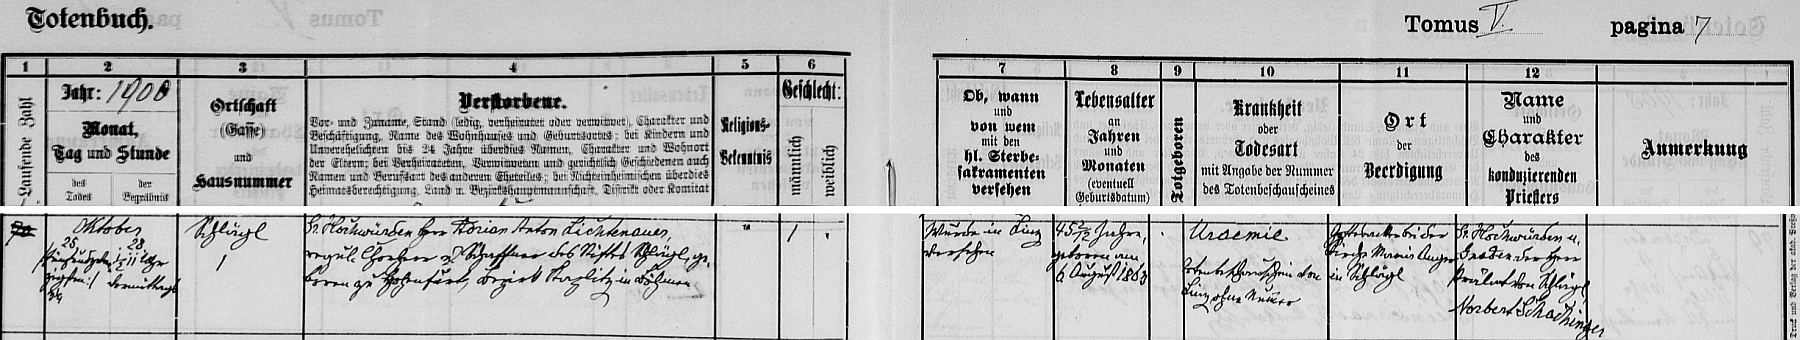 Totenbuch.
Tomus V. pagina 7
1 2 3 4 5 6 7 8 9 10 11 12
Laufende Zahl
Jahr: 1908
Monat,
Tag und Stunde
des Todes
der Begräbnis
Ortschaft
(Gasse)
und
Hausnummer
Verstorbene.
Vor- und Zuname, Stand (ledig, verheiratet oder verwitwet), Charakter und
Beschäftigung, Name des Wohnhauses und Geburtsortes; bei Kindern und
Unverehelichten bis 24 Jahre überdies Namen, Charakter und Wohnort
der Eltern; bei Verheirateten, Verwitweten und gerichtlich Geschiedenen auch
Namen und Berufsart des anderen Eheteiles; bei Nichteinheimischen überdies
Heimatsberechtigung, Land u. Bezirkshauptmannschaft, Distrikt oder Komitat
Religions-
Bekenntnis
Geschlecht:
männlich
weiblich
Ob, wann
und
von wem
mit den
hl. Sterbe-
sakramenten
versehen
Lebensalter
an
Jahren
und
Monaten
(eventuell
Geburtsdatum)
Totgeboren
Krankheit
oder
Todesart
mit Angabe der Nummer
des Totenbeschauscheines
Ort
der
Beerdigung
Name
und
Charakter
des
konduzierenden
Priesters
Anmerkung
Oktober
25 28
Schlägl
1
Sr. Hochwürden Herr Adrian Anton Lichtenauer,
regul. Chorherr u. Schaffner des Stiftes Schlägl, ge-
boren zu Hohenfurt, Bezirk Kaplitz in Böhmen
1
Wurde in Linz
versehen
45 2/12 Jahre,
geboren am
6 August 1863
Uraemie
Totenbeschauschein von
Linz ohne Nummer
Gottesacker bei der
Kirche Maria Anger
in Schlägl
Sr. Hochwürden u.
Gnaden der Herr
Prälat von Schlägl
Norbert Schachinger